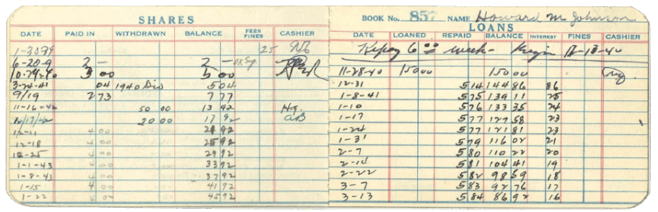 SHARES
DATE PAID IN WITHDRAWN BALANCE FEES FINES CASHIER
25
6-20-9 2- 2-
10-29-40 3 00 5 00
3-24-41 04 1940 Div 5 04
9/19 2 73 7 77
11-16-42 50 00 13 92
10/17/42 20 00 17 92
4 00 21 92
12-18 4 00 25 92
12-25 4 00 29 92
1-1-43 4 00 33 92
1-8-43 4 00 37 92
1-15 4 00 41 92
1-22 4 00 45 92
BOOK No. 857 NAME Howard M Johnson
LOANS
DATE LOANED REPAID BALANCE INTEREST FINES CASHIER
Repay 6 00 week - Begin 12-13-40
11-28-40 150 00 150 00
12-31 5 14 144 86 86
1-8-41 5 75 139 11 25
1-10 5 76 133 35 24
1-17 5 77 127 58 23
1-24 5 77 121 81 23
1-31 5 79 116 02 21
2-7 5 80 110 22 20
2-14 5 81 104 41 19
2-22 5 82 98 59 18
3-7 5 83 92 76 17
3-13 5 84 86 92 16